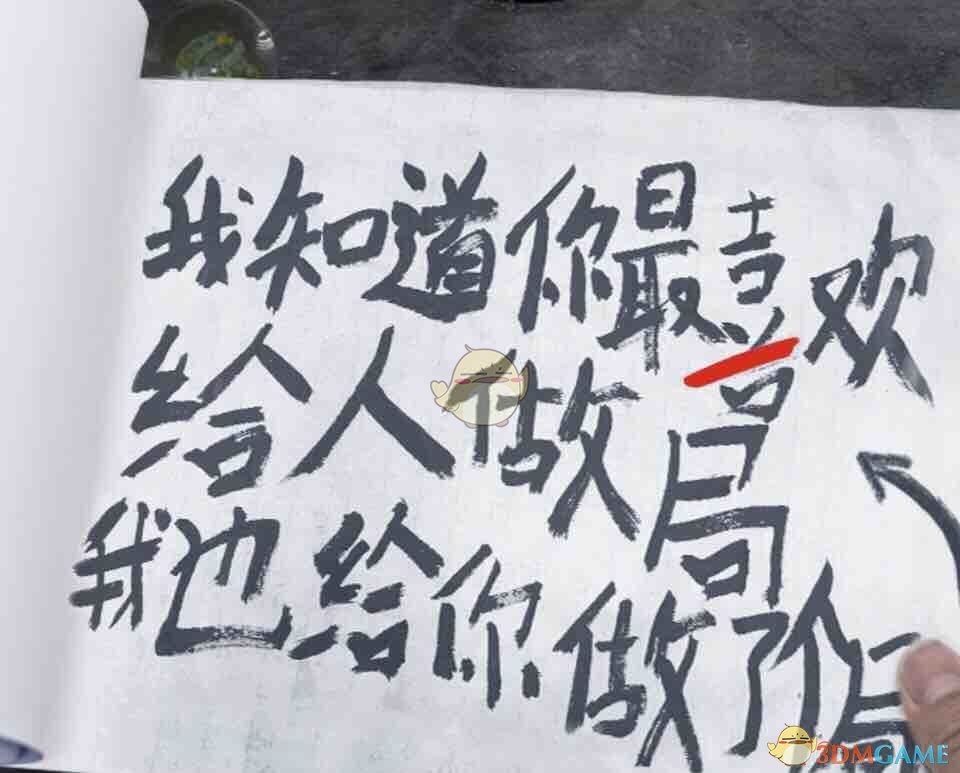 我知道你最喜欢
给人做局
我也给你做了个局
3DMGAME